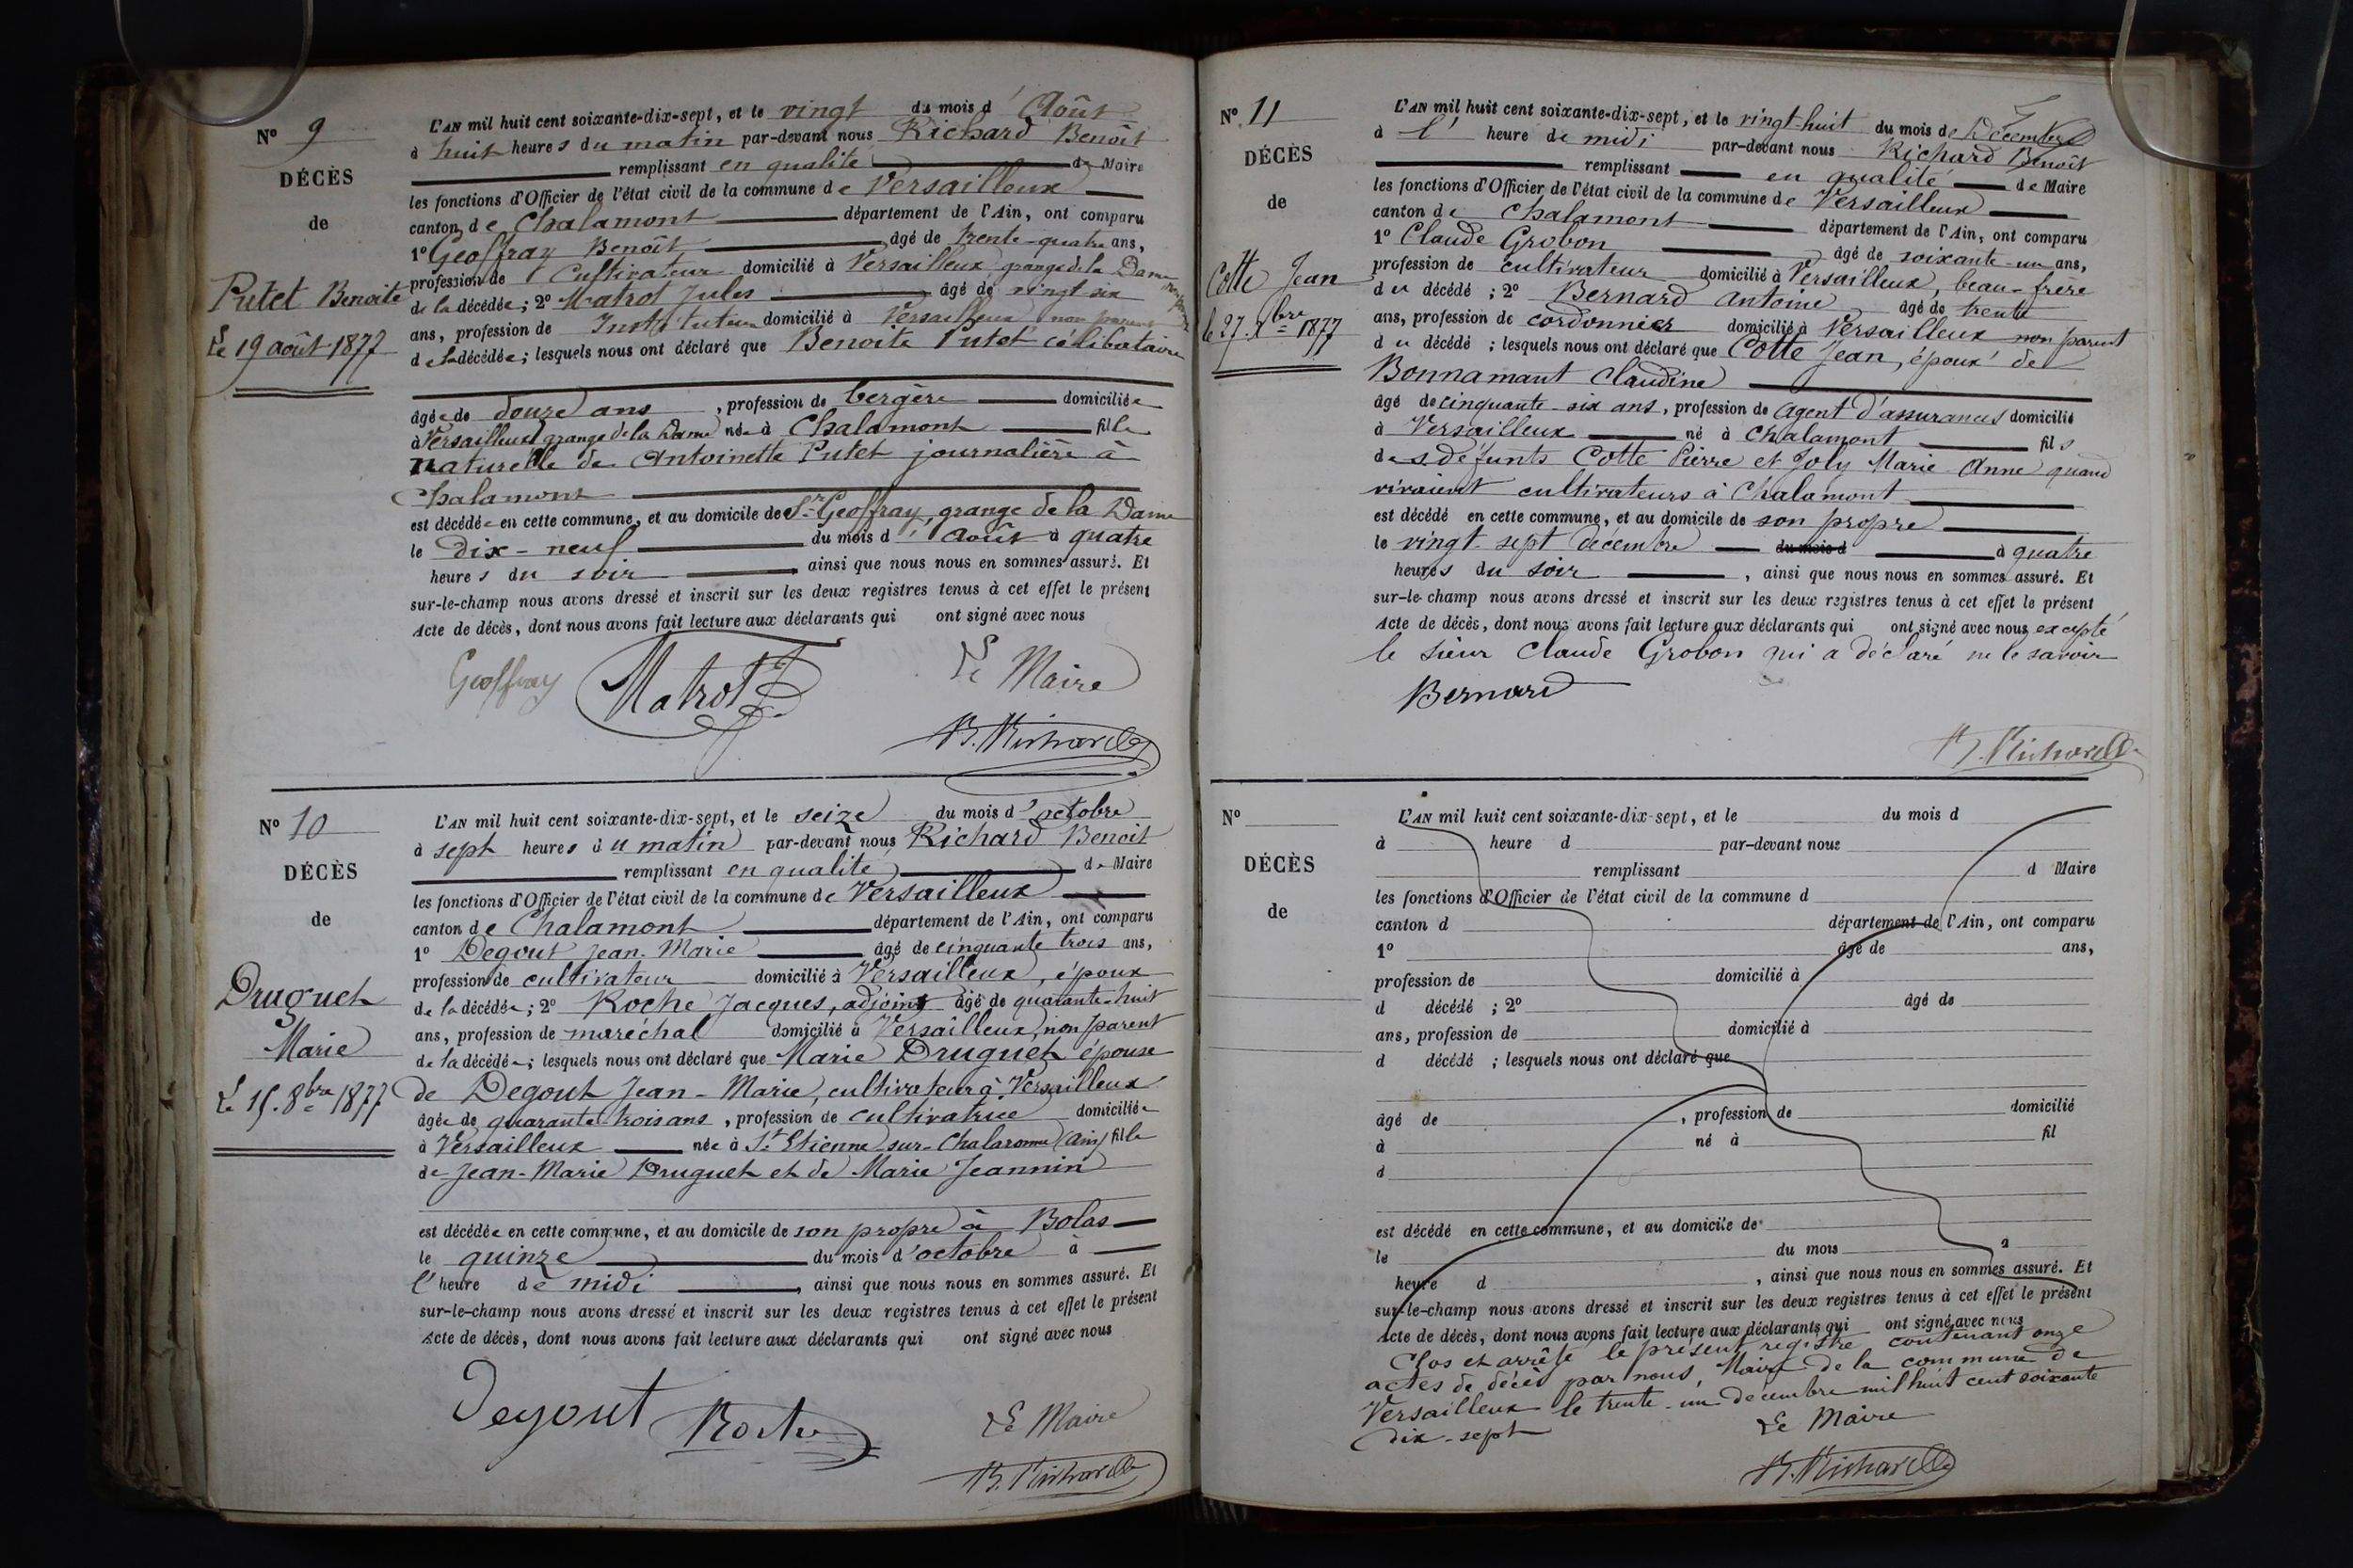 N° 9
DÉCÈS
de
Putet Benoite
Le 19 août 1877
L'AN mil huit cent soixante-dix-sept, et le vingt du mois d'Août
à huit heures du matin par-devant nous Richard Benoît
remplissant en qualité de Maire
les fonctions d'Officier de l'état civil de la commune de Versailleux
canton de Chalamont département de l'Ain, ont comparu
1° Geoffray Benoît âgé de trente-quatre ans,
profession de Cultivateur domicilié à Versailleux, grange de la Dame non parent
de la décédée; 2° Matrot Jules âgé de vingt six
ans, profession de Instituteur domicilié à Versailleux non parent
de la décédée; lesquels nous ont déclaré que Benoite Putet célibataire
âgée de douze ans, profession de bergère domiciliée
à Versailleux grange de la Dame née à Chalamont fille
naturelle de Antoinette Putet journalière à
Chalamont
est décédée en cette commune, et au domicile de Sr Geoffray, grange de la Dame
le dix-neuf du mois d'Août à quatre
heures du soir ainsi que nous nous en sommes assuré. Et
sur-le-champ nous avons dressé et inscrit sur les deux registres tenus à cet effet le présent
Acte de décès, dont nous avons fait lecture aux déclarants qui ont signé avec nous
Geoffray Matrot J Le Maire
B. Richard
N° 10
DÉCÈS
de
Druguet
Marie
Le 15. 8bre 1877
L'AN mil huit cent soixante-dix-sept, et le seize du mois d'octobre
à sept heures du matin par-devant nous Richard Benoit
remplissant en qualité de Maire
les fonctions d'Officier de l'état civil de la commune de Versailleux
canton de Chalamont département de l'Ain, ont comparu
1° Degout Jean-Marie âgé de cinquante trois ans,
profession de cultivateur domicilié à Versailleux, époux
de la décédée; 2° Roche Jacques, adjoint âgé de quarante-huit
ans, profession de maréchal domicilié à Versailleux, non parent
de la décédée; lesquels nous ont déclaré que Marie Druguet épouse
de Degout Jean-Marie, cultivateur à Versailleux
âgée de quarante trois ans, profession de cultivatrice domiciliée
à Versailleux née à St Etienne-sur-Chalaronne (Ain) fille
de Jean-Marie Druguet et de Marie Jeannin
est décédée en cette commune, et au domicile de son propre à Bolas
le quinze du mois d'octobre à
l'heure de midi, ainsi que nous nous en sommes assuré. Et
sur-le-champ nous avons dressé et inscrit sur les deux registres tenus à cet effet le présent
Acte de décès, dont nous avons fait lecture aux déclarants qui ont signé avec nous
Degout Roche Le Maire
B. Richard
N° 11
DÉCÈS
de
Cotte Jean
le 27. Xbre 1877
L'AN mil huit cent soixante-dix-sept, et le vingt-huit du mois de Décembre
à l' heure de midi par-devant nous Richard Benoît
remplissant en qualité de Maire
les fonctions d'Officier de l'état civil de la commune de Versailleux
canton de Chalamont département de l'Ain, ont comparu
1° Claude Grobon âgé de soixante-un ans,
profession de cultivateur domicilié à Versailleux, beau-frère
du décédé; 2° Bernard Antoine âgé de trente
ans, profession de cordonnier domicilié à Versailleux non parent
du décédé; lesquels nous ont déclaré que Cotte Jean, époux de
Bonnamant Claudine
âgé de cinquante-six ans, profession de Agent d'assurances domicilié
à Versailleux né à Chalamont fils
des défunts Cotte Pierre et Joly Marie Anne quand
vivaient cultivateurs à Chalamont
est décédé en cette commune, et au domicile de son propre
le vingt-sept décembre du mois d à quatre
heures du soir, ainsi que nous nous en sommes assuré. Et
sur-le-champ nous avons dressé et inscrit sur les deux registres tenus à cet effet le présent
Acte de décès, dont nous avons fait lecture aux déclarants qui ont signé avec nous excepté
le sieur Claude Grobon qui a déclaré ne le savoir
Bernard
B. Richard
N°
DÉCÈS
de
L'AN mil huit cent soixante-dix-sept, et le du mois d
à heure d par-devant nous
remplissant d Maire
les fonctions d'Officier de l'état civil de la commune d
canton d département de l'Ain, ont comparu
1° âgé de ans,
profession de domicilié à
d décédé; 2° âgé de
ans, profession de domicilié à
d décédé; lesquels nous ont déclaré que
âgé de, profession de domicilié
à né à fil
d
est décédé en cette commune, et au domicile de
le du mois à
heure d, ainsi que nous nous en sommes assuré. Et
sur-le-champ nous avons dressé et inscrit sur les deux registres tenus à cet effet le présent
Acte de décès, dont nous avons fait lecture aux déclarants qui ont signé avec nous
Clos et arrêté le présent registre contenant onze
actes de décès par nous, Maire de la commune de
Versailleux le trente-un décembre mil huit cent soixante
dix-sept Le Maire
B. Richard